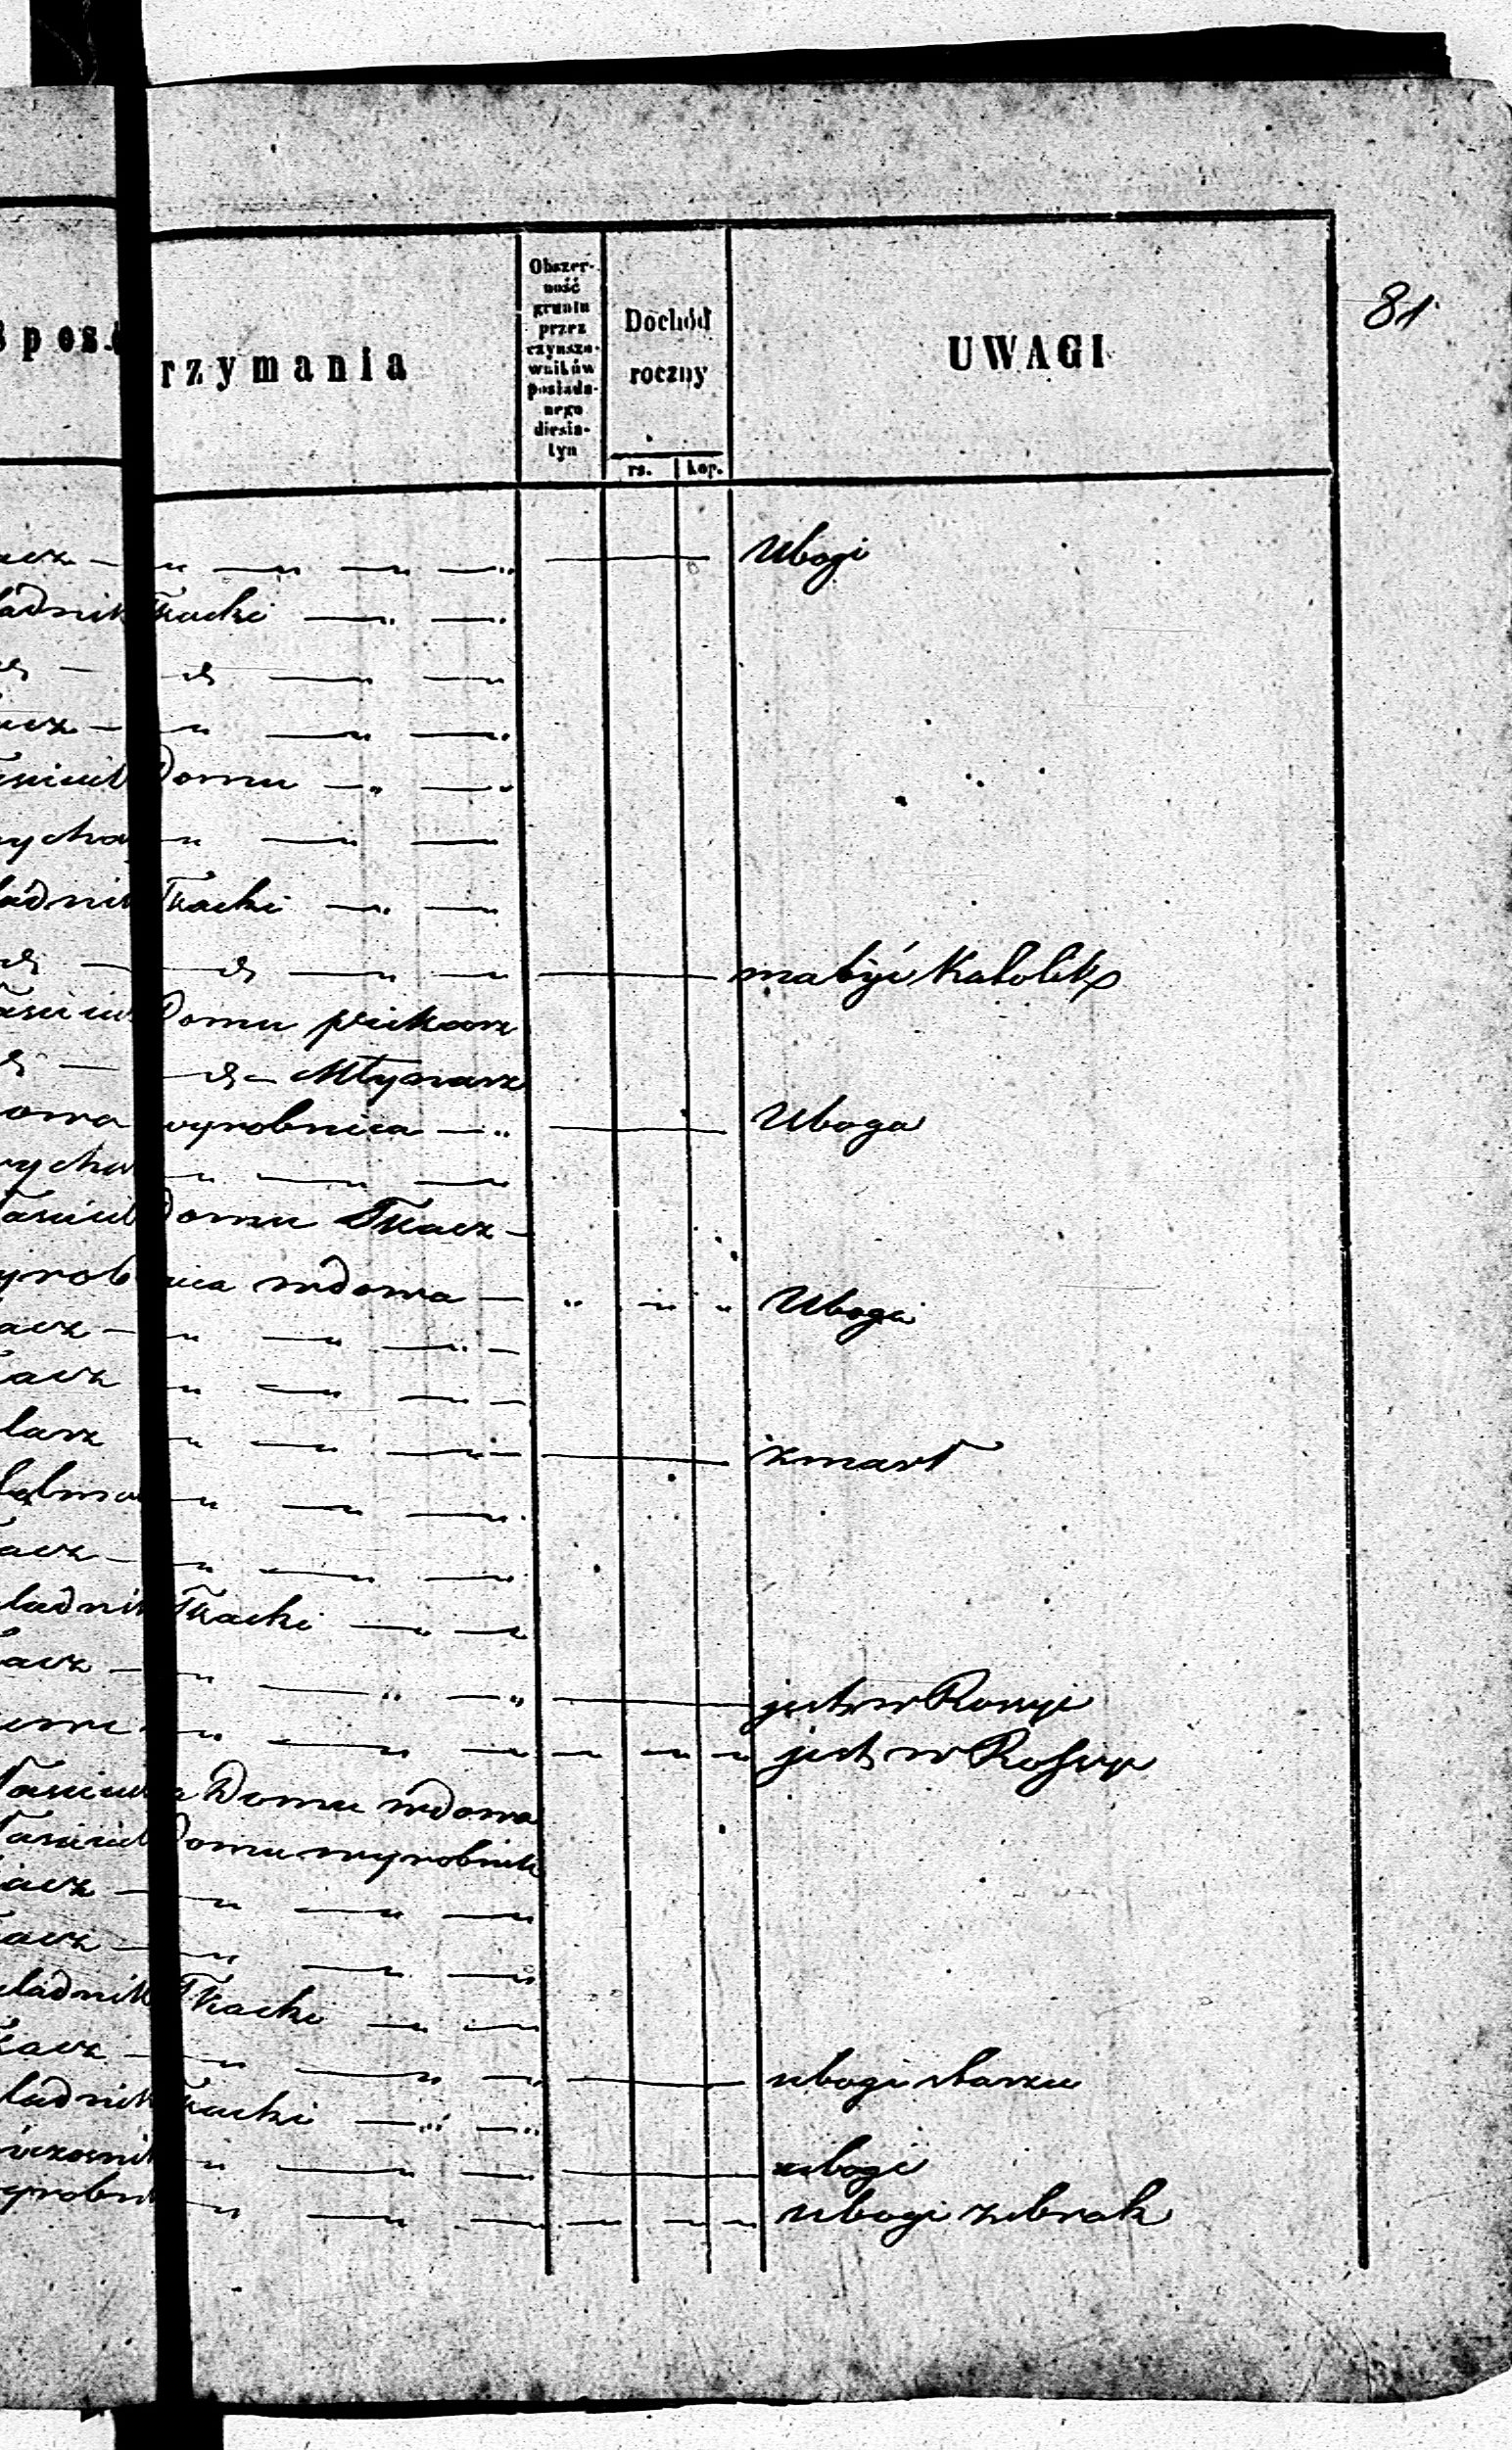 81
Spos
rzymania
Obszer-
ność
gruntu
przez
czynszo-
wników
posiada-
nego
diesia-
tyn
Dochód
roczny
rs. kop.
UWAGI
acz Ubogi
ladnik Tkacki
acz
Domu
ladnik Tkacki
ma być Katolik
Domu piekarz
Młynarz
owa wyrobnica Uboga
Domu Tkacz
yrobnica wdowa Uboga
acz
acz
larz zmarł
acz
ladnik Tkacki
acz jest w Rossyi
jest w Rossyi
Domu wdowa
Domu wyrobnik
acz
acz
ladnik Tkacki
acz ubogi starzec
ladnik Tkacki
ubogi
yrobn ubogi zebrak